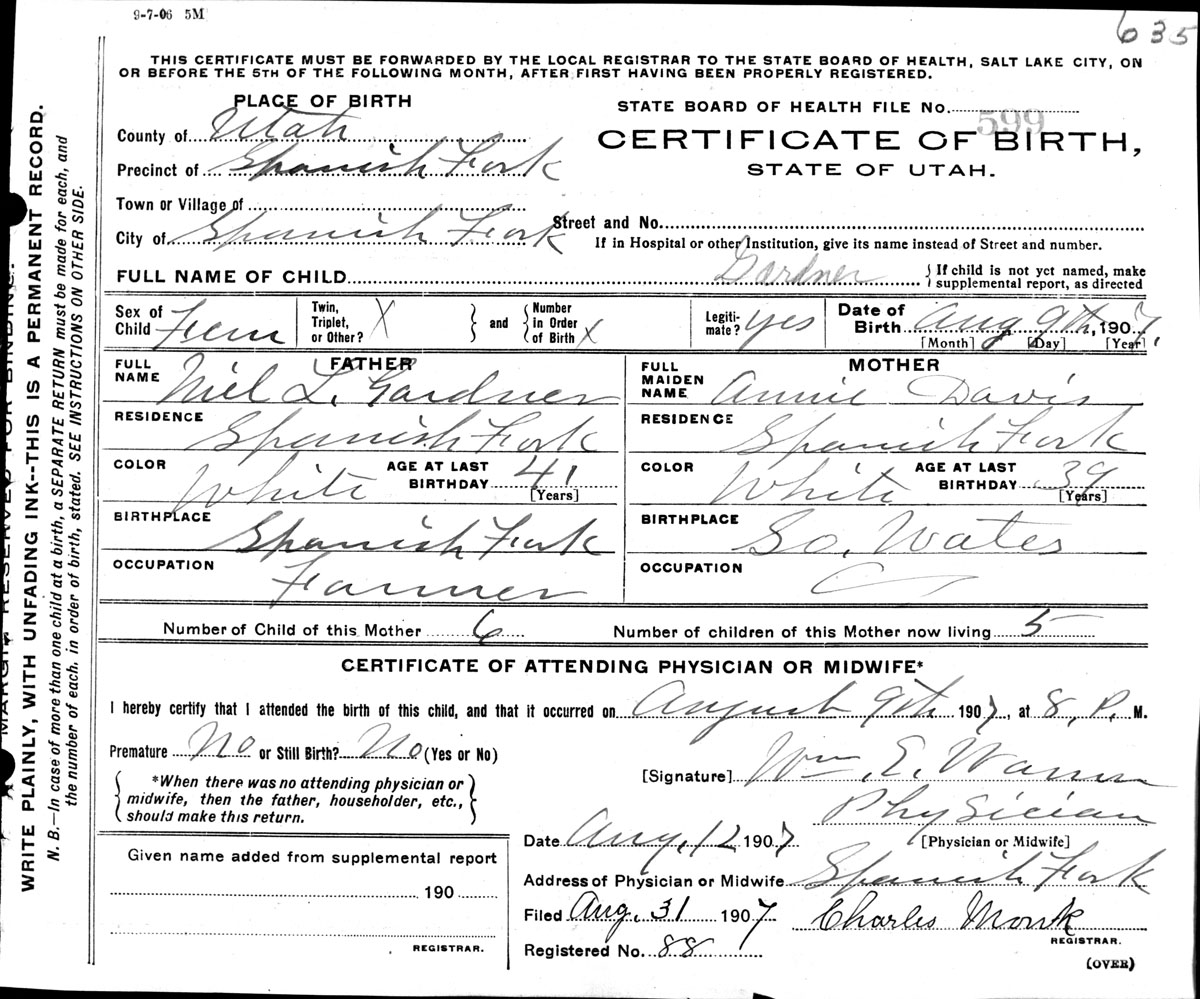 9-7-06 5M
635
THIS CERTIFICATE MUST BE FORWARDED BY THE LOCAL REGISTRAR TO THE STATE BOARD OF HEALTH, SALT LAKE CITY, ON
OR BEFORE THE 5TH OF THE FOLLOWING MONTH, AFTER FIRST HAVING BEEN PROPERLY REGISTERED.
PLACE OF BIRTH
County of Utah
Precinct of Spanish Fork
Town or Village of
City of Spanish Fork
STATE BOARD OF HEALTH FILE No. 599
CERTIFICATE OF BIRTH,
STATE OF UTAH.
Street and No.
If in Hospital or other Institution, give its name instead of Street and number.
FULL NAME OF CHILD Gardner { If child is not yet named, make
supplemental report, as directed
Sex of Child Fem
Twin, Triplet, or Other? X } and { Number in Order of Birth X
Legiti-mate? yes
Date of Birth Aug 9th, 1907,
[Month] [Day] [Year]
FATHER
FULL NAME Niel L. Gardner
RESIDENCE Spanish Fork
COLOR White AGE AT LAST BIRTHDAY 41
[Years]
BIRTHPLACE Spanish Fork
OCCUPATION Farmer
MOTHER
FULL MAIDEN NAME Annie Davis
RESIDENCE Spanish Fork
COLOR White AGE AT LAST BIRTHDAY 39
[Years]
BIRTHPLACE So. Wales
OCCUPATION
Number of Child of this Mother 6 Number of children of this Mother now living 5
CERTIFICATE OF ATTENDING PHYSICIAN OR MIDWIFE*
I hereby certify that I attended the birth of this child, and that it occurred on August 9th 1907, at 8, P. M.
Premature No or Still Birth? No (Yes or No)
*When there was no attending physician or
midwife, then the father, householder, etc.,
should make this return.
[Signature] Wm. E. Warren
Physician
[Physician or Midwife]
Date Aug, 12 1907
Address of Physician or Midwife Spanish Fork
Filed Aug. 31 1907 Charles Monk
REGISTRAR.
Registered No. 88
(OVER)
Given name added from supplemental report
190
REGISTRAR.
MARGIN RESERVED FOR BINDING.
WRITE PLAINLY, WITH UNFADING INK--THIS IS A PERMANENT RECORD.
N. B.—In case of more than one child at a birth, a SEPARATE RETURN must be made for each, and
the number of each, in order of birth, stated. SEE INSTRUCTIONS ON OTHER SIDE.